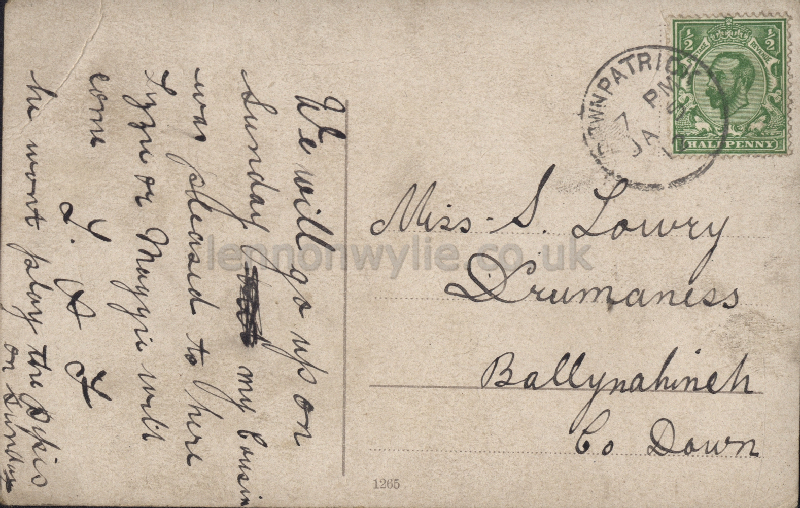 We will go up on
Sunday my Cousin
was pleased to here
Lyzzie or Maggie will
come
L. A F
he wont play the
on Sunday
Miss S. Lowry
Drumaness
Ballynahinch
Co Down
1265
DOWNPATRICK
7 PM
JA
½ ½
HALFPENNY
lennonwylie.co.uk